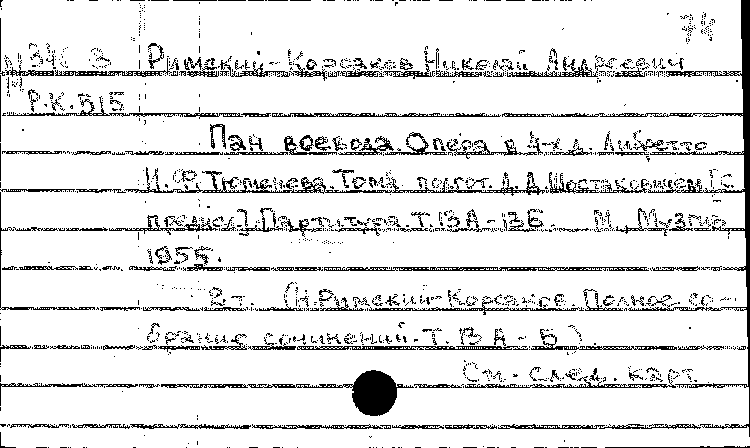 74
346 3 Римский-Корсаков, Николай Андреевич
Р.К.515
Пан воевода. Опера в 4-х д. Либретто
И.Ф. Тюменева. Тома подгот. А.Д. Шостаковичем [с
предисл.]. Партитура. Т.13А-13Б. М., Музгиз,
1955.
2 т. (Н. Римский-Корсаков. Полное со-
брание сочинений. Т. 13 А - Б).
См. след. карт.